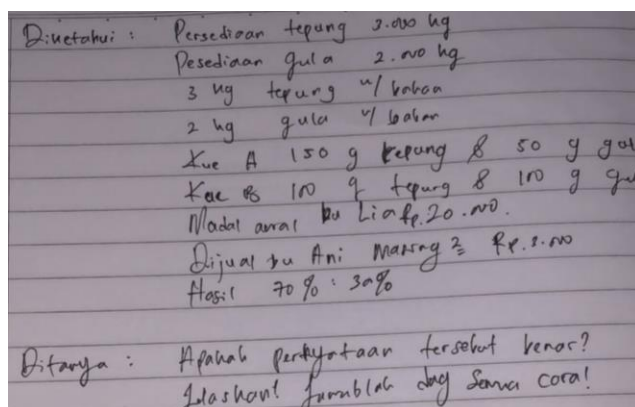 Diketahui : Persediaan tepung 3.000 kg
Pesediaan gula 2.000 kg
3 kg tepung u/ bahan
2 kg gula u/ bahan
Kue A 150 g tepung & 50 g gul
Kue B 100 g tepung & 100 g gu
Modal awal bu Lia Rp. 20.000.
Dijual bu Ani masing² Rp.
Hasil 70% : 30%
Ditanya : Apakah pernyataan tersebut benar?
Jelaskan! dng semua cara!